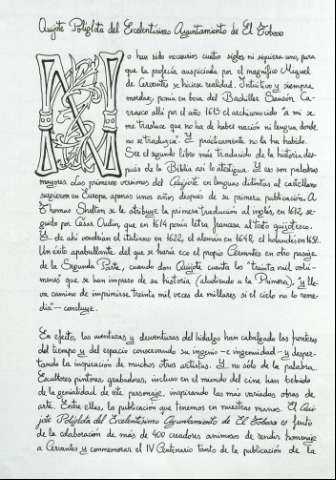 Quijote Políglota del Excelentísimo Ayuntamiento de El Toboso
No han sido necesarios cuatro siglos ni siquiera uno, para
que la profecía auspiciada por el magnífico Miguel
de Cervantes se hiciese realidad. Intuitivo y siempre
mordaz, ponía en boca del Bachiller Sansón Ca-
rrasco allá por el año 1615 el archiconocido "a mí se
me trasluce que no ha de haber nación ni lengua donde
no se traduzca". Y prácticamente no la ha habido.
Ser el segundo libro más traducido de la historia des-
pués de la Biblia así lo atestigua. Y eso son palabras
mayores. Las primeras versiones del Quijote en lenguas distintas al castellano
surgieron en Europa apenas unos años después de su primera publicación. A
Thomas Shelton se le atribuye la primera traducción al inglés, en 1612, se-
guido por César Oudin, que en 1614 ponía letra francesa al texto quijotesco.
Y de ahí vendrían el italiano en 1622, el alemán en 1648, el holandés en 1657.
Un éxito apabullante del que se haría eco el propio Cervantes en otro pasaje
de la Segunda Parte, cuando don Quijote cuenta los "treinta mil volú-
menes que se han impreso de su historia (aludiendo a la Primera), y lle-
va camino de imprimirse treinta mil veces de millares si el cielo no lo reme-
dia" – concluye.
En efecto, las aventuras y desventuras del hidalgo han cabalgado las fronteras
del tiempo y del espacio conservando su ingenio -e ingenuidad- y desper-
tando la inspiración de muchos otros artistas. Y no sólo de la palabra.
Escultores, pintores, grabadores, incluso en el mundo del cine han bebido
de la genialidad de este personaje, inspirando las más variadas obras de
arte. Entre ellas, la publicación que tenemos en nuestras manos. El Qui-
jote Políglota del Excelentísimo Ayuntamiento de El Toboso es fruto
de la colaboración de más de 400 creadores animosos de rendir homenaje
a Cervantes y conmemorar el IV Centenario tanto de la publicación de la